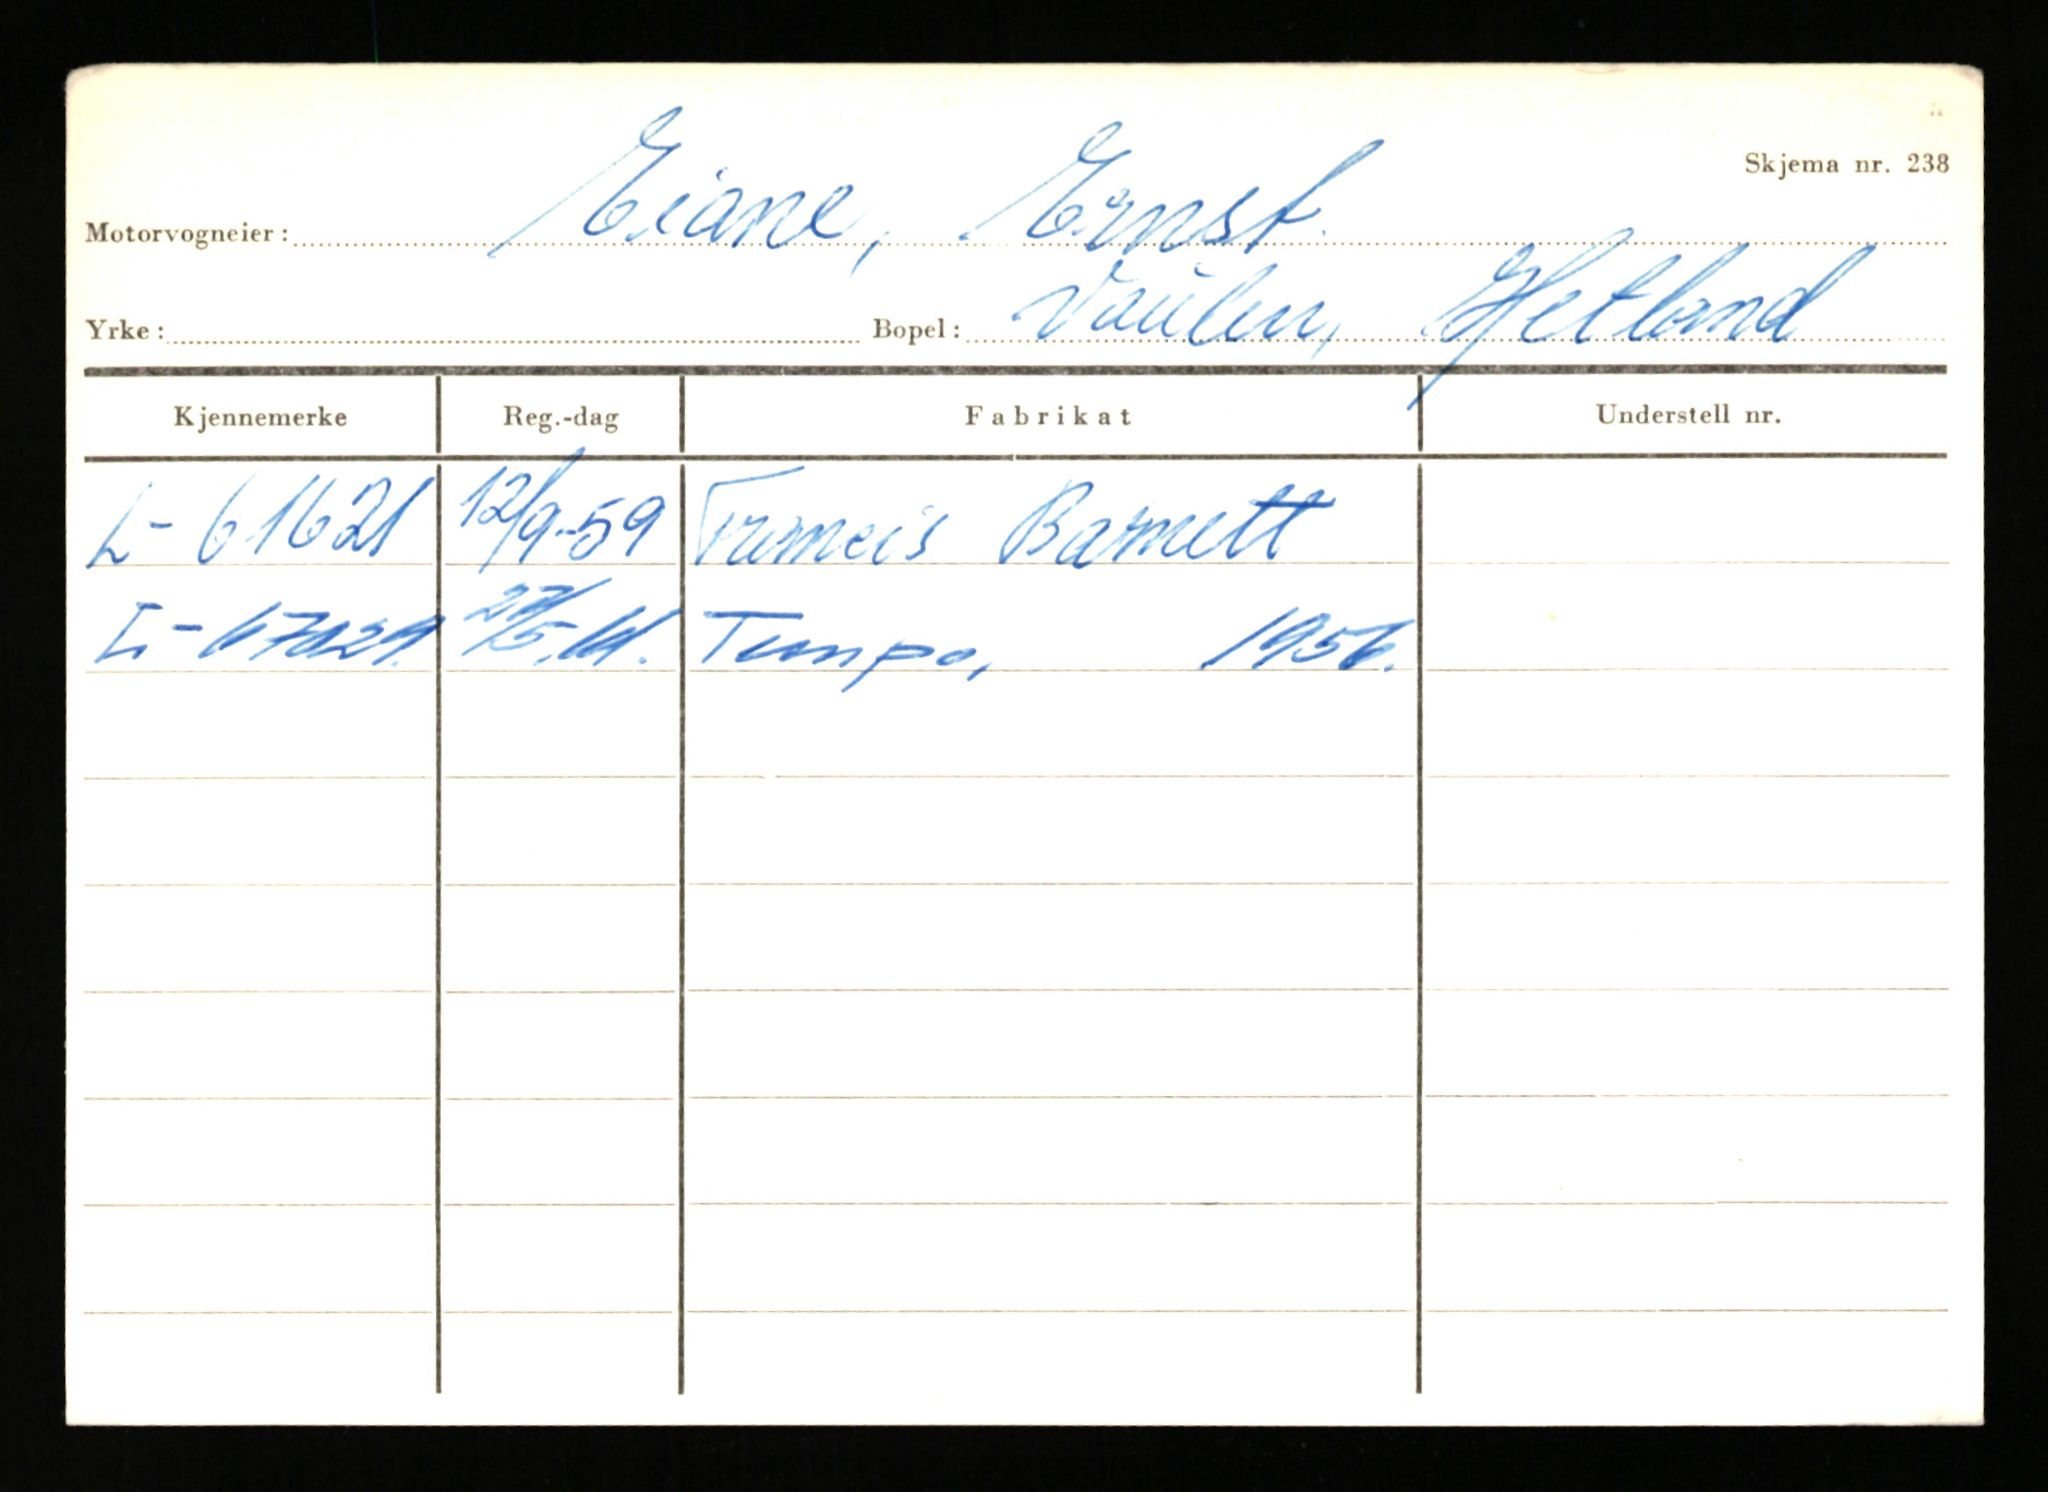 Skjema nr. 238
Motorvogneier: Eiane, Ernst.
Yrke: Bopel: Vaulen, Hetland
Kjennemerke Reg.-dag Fabrikat Understell nr.
L-61621 12/9-59 Francis Barnett
L-67029. 27/5.61. Tempo, 1956.